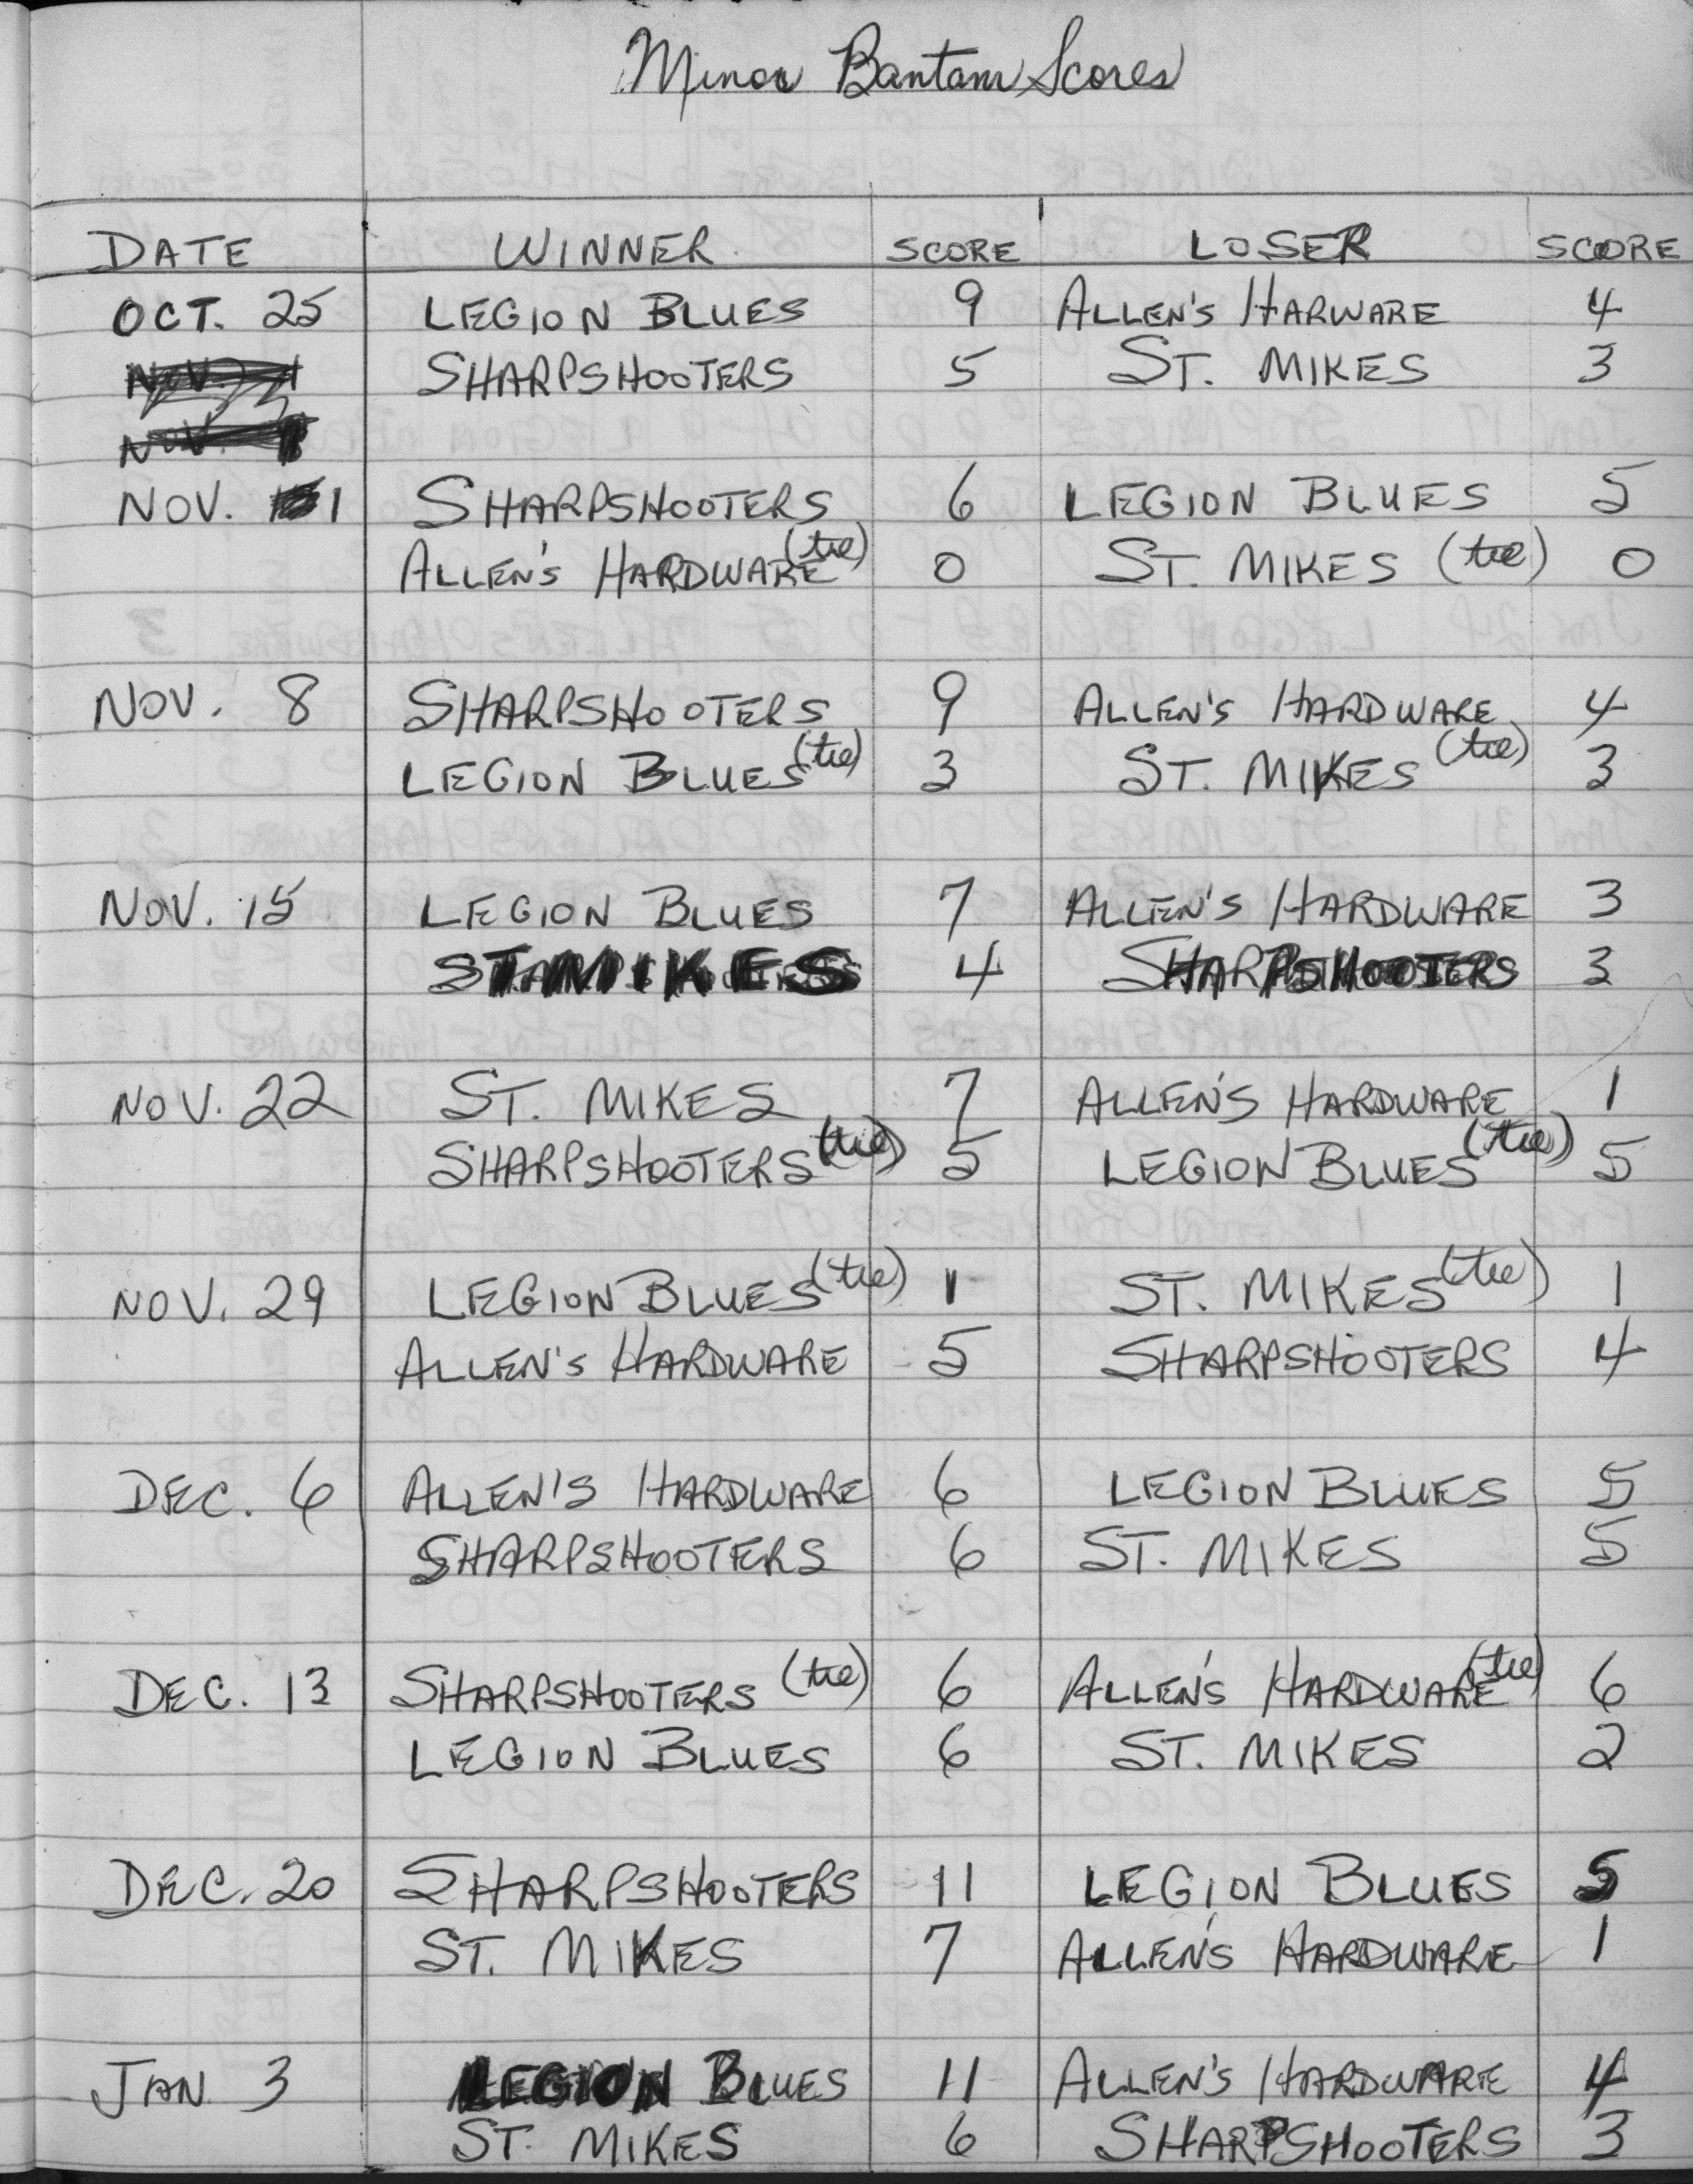 Minor Bantam Scores
DATE WINNER SCORE LOSER SCORE
OCT. 25 LEGION BLUES 9 ALLEN'S HARWARE 4
SHARPSHOOTERS 5 ST. MIKES 3
NOV.
NOV. 1 SHARPSHOOTERS 6 LEGION BLUES 5
ALLEN'S HARDWARE (tie) 0 ST. MIKES (tie) 0
NOV. 8 SHARPSHOOTERS 9 ALLEN'S HARDWARE 4
LEGION BLUES (tie) 3 ST. MIKES (tie) 3
NOV. 15 LEGION BLUES 7 ALLEN'S HARDWARE 3
ST MIKES 4 SHARPSHOOTERS 3
NOV. 22 ST. MIKES 7 ALLEN'S HARDWARE 1
SHARPSHOOTERS (tie) 5 LEGION BLUES (tie) 5
NOV. 29 LEGION BLUES (tie) 1 ST. MIKES (tie) 1
ALLEN'S HARDWARE 5 SHARPSHOOTERS 4
DEC. 6 ALLEN'S HARDWARE 6 LEGION BLUES 5
SHARPSHOOTERS 6 ST. MIKES 5
DEC. 13 SHARPSHOOTERS (tie) 6 ALLEN'S HARDWARE (tie) 6
LEGION BLUES 6 ST. MIKES 2
DEC. 20 SHARPSHOOTERS 11 LEGION BLUES 5
ST. MIKES 7 ALLEN'S HARDWARE 1
JAN 3 LEGION BLUES 11 ALLEN'S HARDWARE 4
ST. MIKES 6 SHARPSHOOTERS 3